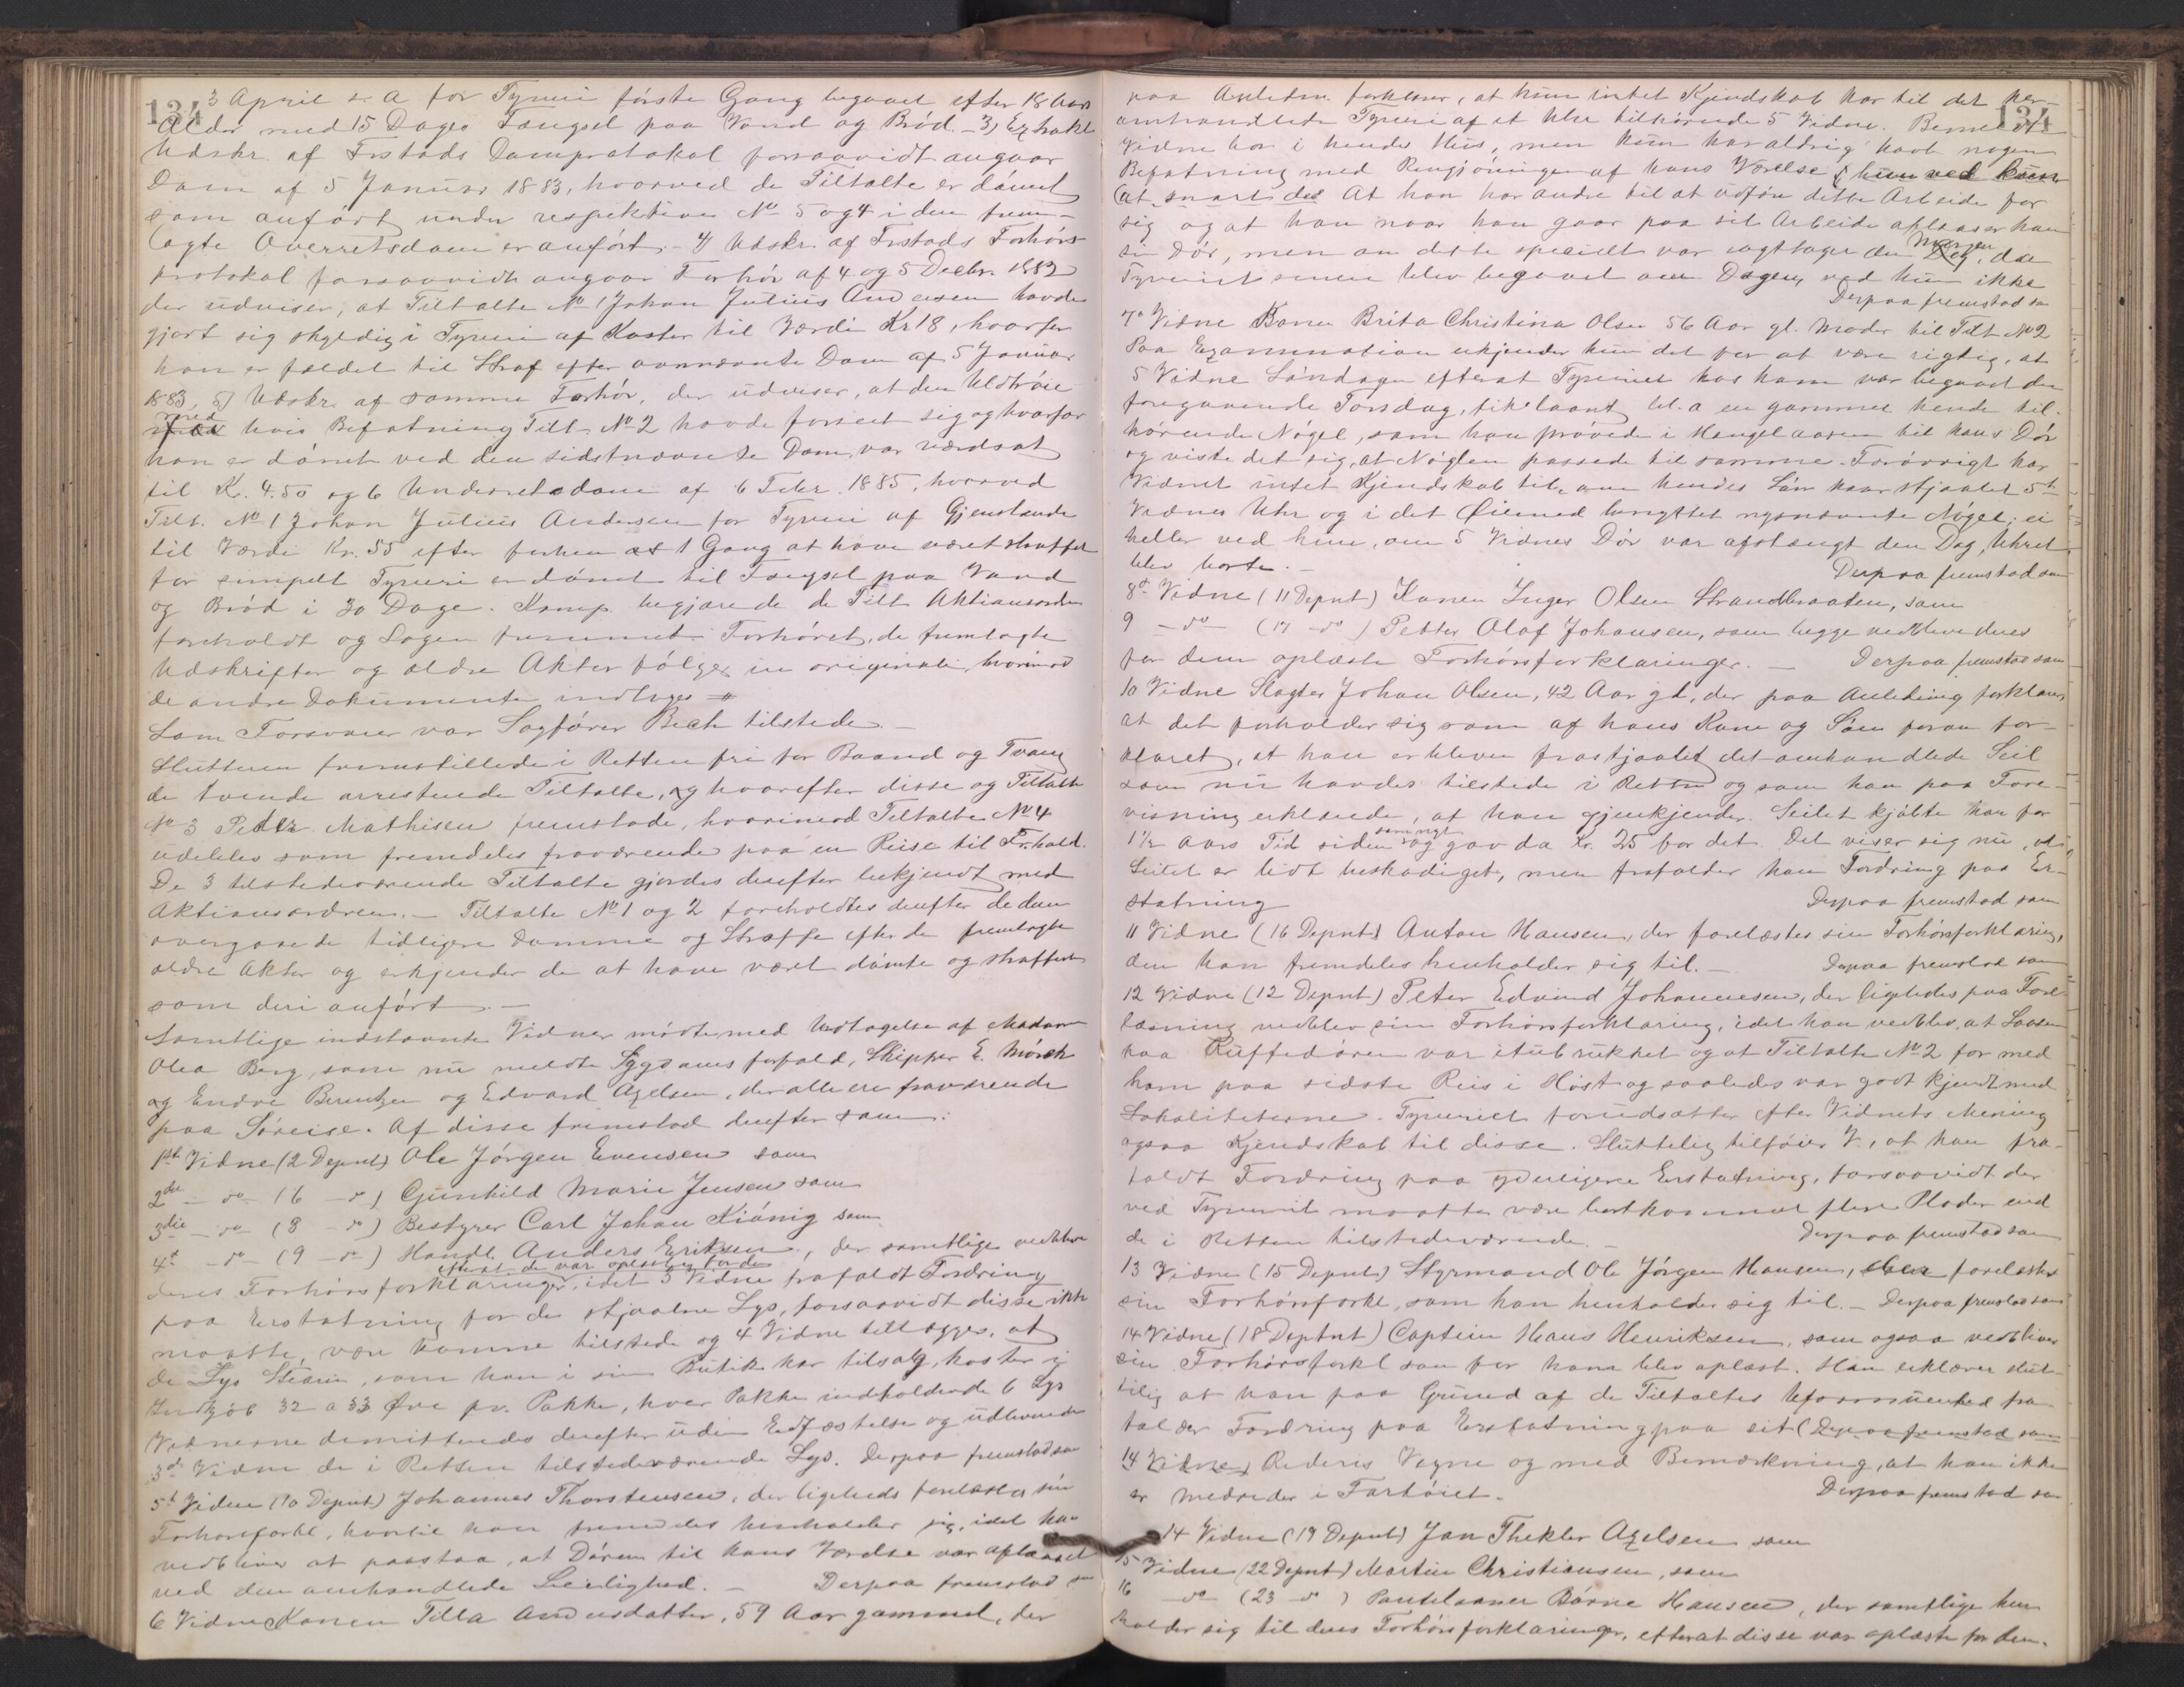 134
3 April s. A for Tyveri første Gang begaaet efter 18 Aars
Alder med 15 Dages Fængsel paa Vand og Brød. - 3) Extrakt
Udskr. af Grstads Domsprotokol forsaavidt angaar
Dom af 5 Januar 1883, hvorved de Tiltalte er dømt
som anført under respektive No 5 og 4 i den frem-
lagte Overretsdom er anført. - 4) Udskr. af Grstads Forhørs
protokol forsaavidt angaar Forhør af 4 og 5 Decbr. 1882
der udviser, at Tiltalte No 1 Johan Julius Andersen havde
gjort sig skyldig i Tyveri af Koster til Værdi Kr 18, hvorfor
han er fældet til Straf efter ovennævnte Dom af 5 Januar
1883, 5) Udskr. af samme Forhør, der udviser, at den Uldtrøie
med hvis Befatning Tilt. No 2 havde forseet sig og hvorfor
han er dømt ved den sidstnævnte Dom, var værdsat
til Kr. 4.50 og 6 Underretsdom af 6 Febr. 1885, hvorved
Tilt. No 1 Johan Julius Andersen for Tyveri af Gjenstande
til Værdi Kr. 55 efter forhen at 1 Gang at have været straffet
for simpelt Tyveri er dømt til Fængsel paa Vand
og Brød i 30 Dage. Komp. begjærede de Tilt. Aktionsordren
foreholdt og Sagen fremmet. Forhøret, de fremlagte
Udskrifter og ældre Akter følger in originali, hvorimod
de andre Dokumenter indtages #
Som Forsvarer var Sagfører Bech tilstede. -
Slutteren fremstillede i Retten fri for Baand og Tvang
de tvende arresterede Tiltalte, og hvorefter disse og Tiltalte
No 3 Peder Mathisen fremstode, hvorimod Tiltalte No 4
udeblev som fremdeles fraværende paa en Reise til Fr.hald.
De 3 tilstedeværende Tiltalte gjordes derefter bekjendt med
Aktionsordren. - Tiltalte No 1 og 2 foreholdtes derefter de dem
overgaaede tidligere Domme og Straffe efter de fremlagte
ældre Akter og erkjender de at have været dømte og straffede
som deri anført. -
Samtlige indstævnte Vidner mødte med Undtagelse af Madam
Olea Berg, som nu meldte Sygdoms forfald, Skipper E. Mørch
og Endre Berentzen og Edvard Axelsen, der alle ere fraværende
paa Søreise. Af disse fremstod derefter som:
1ste Vidne (2 Deputt) Ole Jørgen Evensen som
2det - do - (6 - do) Gunhild Marie Jensen som
3die - do - (8 - do) Bestyrer Carl Johan Kiønig som
4de - do - (9 - do) Handl. Anders Eriksen, der samtlige vedblev
efterat de var oplæste for dem
deres Forhørsforklaringer, idet 3 Vidne frafaldt Fordring
paa Erstatning for de stjaalne Lys, forsaavidt disse ikke
maatte være komne tilstede og 4 Vidne tillægges, at
de Lys Stearin, som han i sin Butik har tilsalg, koster i
Indkjøb 32 a 33 Øre pr. Pakke, hver Pakke indholdende 6 Lys
Vidnerne demitteredes derefter uden Edfæstelse og udleveredes
3die Vidne de i Retten tilstedeværende Lys. Derpaa fremstod som
5t Vidne (10 Deputt) Johannes Thorstensen, der ligeledes forelæstes sin
Forhørsforkl, hvortil han fremdeles henholder sig, idet han
vedbliver at paastaa, at Døren til hans Værelse var aflaaset
ved den omhandlede Leilighed. - Derpaa fremstod som
6 Vidne Konen Tilla Andersdatter, 59 Aar gammel, der
134
paa Anledn. forklarer, at hun intet Kjendskab har til det her-
omhandlede Tyveri af et Uhr tilhørende 5 Vidne. Bemeldte
Vidne bor i hendes Hus, men hun har aldrig havt nogen
Befatning med Rengjøringen af hans Værelse
At han har andre til at udføre dette Arbeide for
sig og at han naar han gaar paa sit Arbeide aflaaser han
sin Dør, men om dette specielt var iagttaget den Morgen, da
Tyveriet senere blev begaaet om Dagen, ved hun ikke
Derpaa fremstod som
7de Vidne Konen Brita Christina Olsen 56 Aar gl. Moder til Tilt No 2
Paa Examination erkjender hun det for at være rigtig, at
5 Vidne Søndagen efterat Tyveriet hos ham var begaaet den
foregaaende Torsdag, fik laant bl. a en gammel hende til-
hørende Nøgel, som han prøvede i Hængelaasen til hans Dør
og viste det sig, at Nøglen passede til samme. Forøvrigt har
Vidnet intet Kjendskab til, om hendes Søn har stjaalet 5te
Vidnes Uhr og i det Øiemed benyttet nysnævnte Nøgel, ei
heller ved hun, om 5 Vidnes Dør var afstængt den Dag, Uhret
blev borte. - Derpaa fremstod som
8de Vidne (11 Deputt) Konen Inger Olsen Strandbraaten, som
9 - do - (17 - do) Petter Olaf Johansen, som begge vedbleve deres
for dem oplæste Forhørsforklaringer. - Derpaa fremstod som
10 Vidne Slagter Johan Olsen, 42 Aar gl, der paa Anledning forklarer,
at det forholder sig som af hans Kone og Søn foran for-
klaret, at han er bleven frastjaalet det omhandlede Seil
som nu havdes tilstede i Retten og som han paa Fore-
visning erklærede, at han gjenkjender. Seilet kjøbte han for
1½ Aars Tid siden som nyt og gav da Kr. 25 for det. Det viser sig nu, at
Seilet er lidt beskadiget, men frafalder han Fordring paa Er-
statning Derpaa fremstod som
11 Vidne (16 Deputt) Anton Hansen, der forelæstes sin Forhørsforklaring,
den han fremdeles henholder sig til. - Derpaa fremstod som
12 Vidne (12 Deputt) Peter Edvind Johannesen, der ligeledes paa Fore-
læsning vedblev sin Forhørsforklaring, idet han vedblev, at Laasen
paa Ruffedøren var itubrukket og at Tiltalte No 2 for med
ham paa sidste Reis i Høst og saaledes var godt kjendt med
Lokaliteterne. Tyveriet forudsætter efter Vidnets Mening
ogsaa Kjendskab til disse. Sluttelig tilføier V., at han fra-
faldt Fordring paa yderligere Erstatning, forsaavidt der
ved Tyveriet maatte være bortkommet flere Plader end
de i Retten tilstedeværende. - Derpaa fremstod som
13 Vidne (15 Deputt) Styrmand Ole Jørgen Hansen, forelæstes
sin Forhørsforkl, som han henholder sig til. - Derpaa fremstod som
14 Vidne (18 Deputt) Captein Hans Henriksen, som ogsaa vedbliver
sin Forhørsforkl som for ham blev oplæst. Han erklærer slut-
telig at han paa Grund af de Tiltaltes Uformuenhed fra-
falder Fordring paa Erstatning paa sit (Derpaa fremstod som
14 Vidne) Rederis Vegne og med Bemærkning, at han ikke
er medreder i Fartøiet. - Derpaa fremstod som
14 Vidne (19 Deputt) Jan Thekler Axelsen som
15 Vidne (22 Deputt) Martin Christiansen, som
16 - do - (23 - do) Pantelaaner Børre Hansen, der samtlige hen-
holder sig til deres Forhørsforklaringer, efterat disse var oplæste for dem.